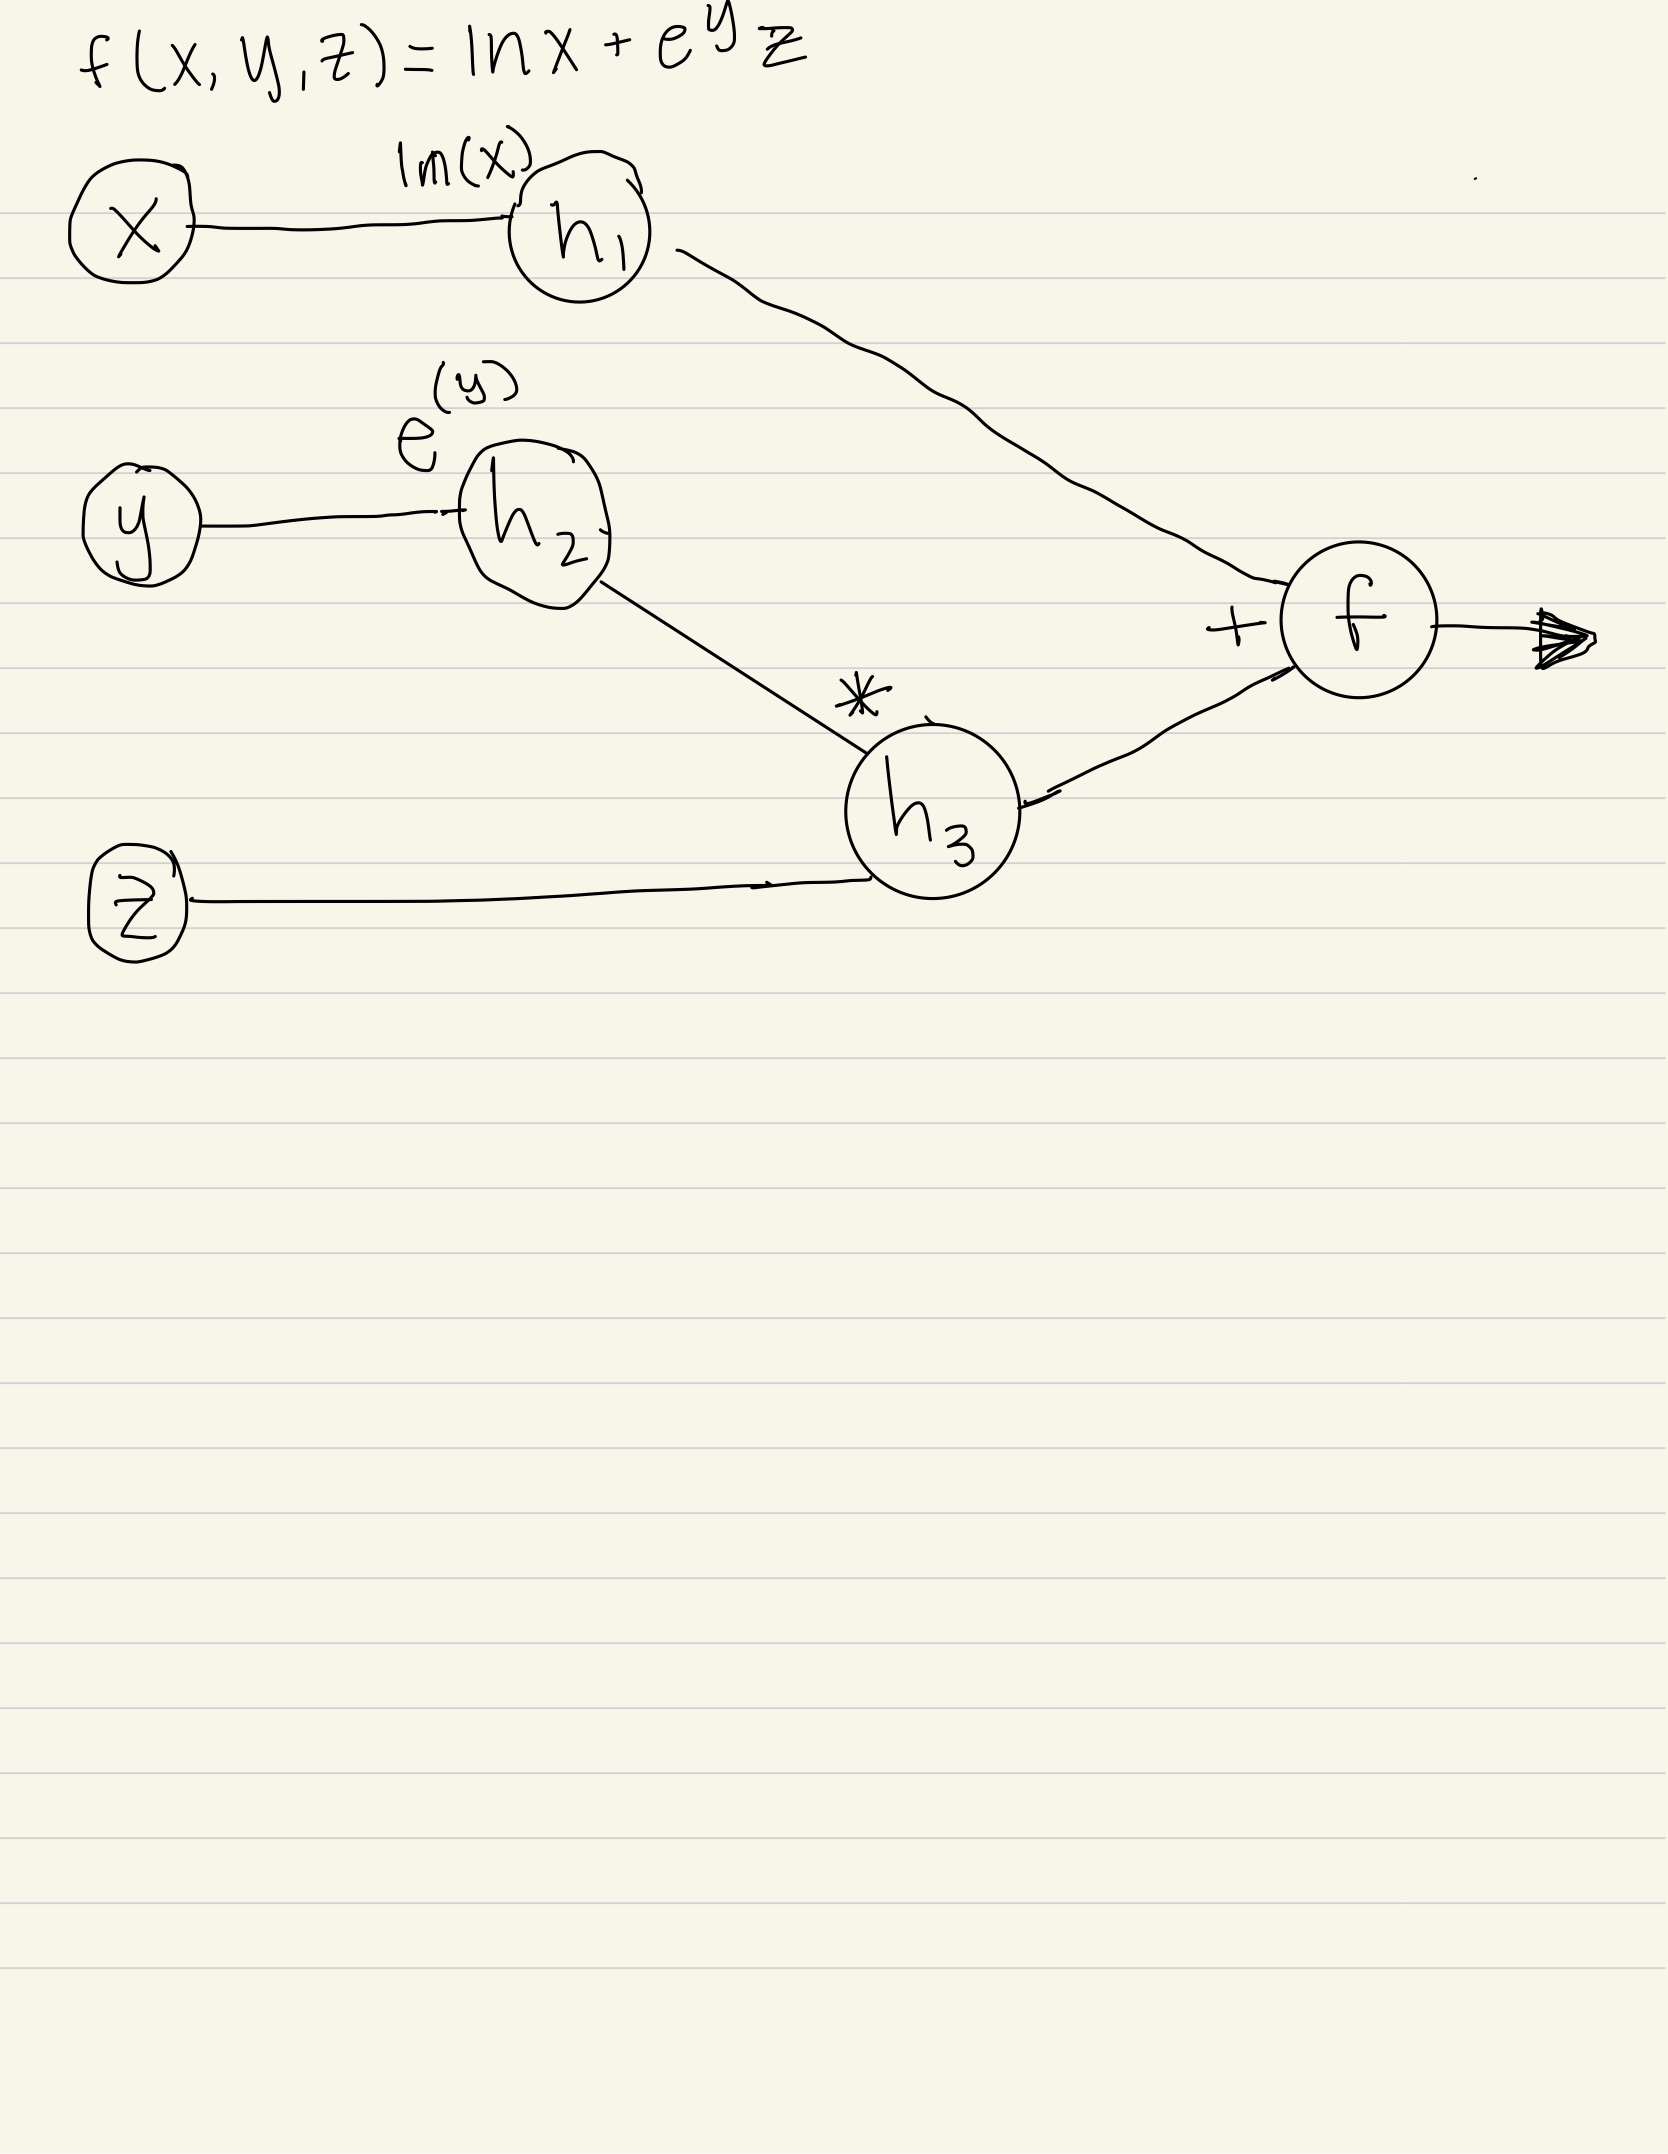 f(x, y, z) = ln x + e^y z
ln(x)
x h₁
e^(y)
y h₂
+ f
*
h₃
z